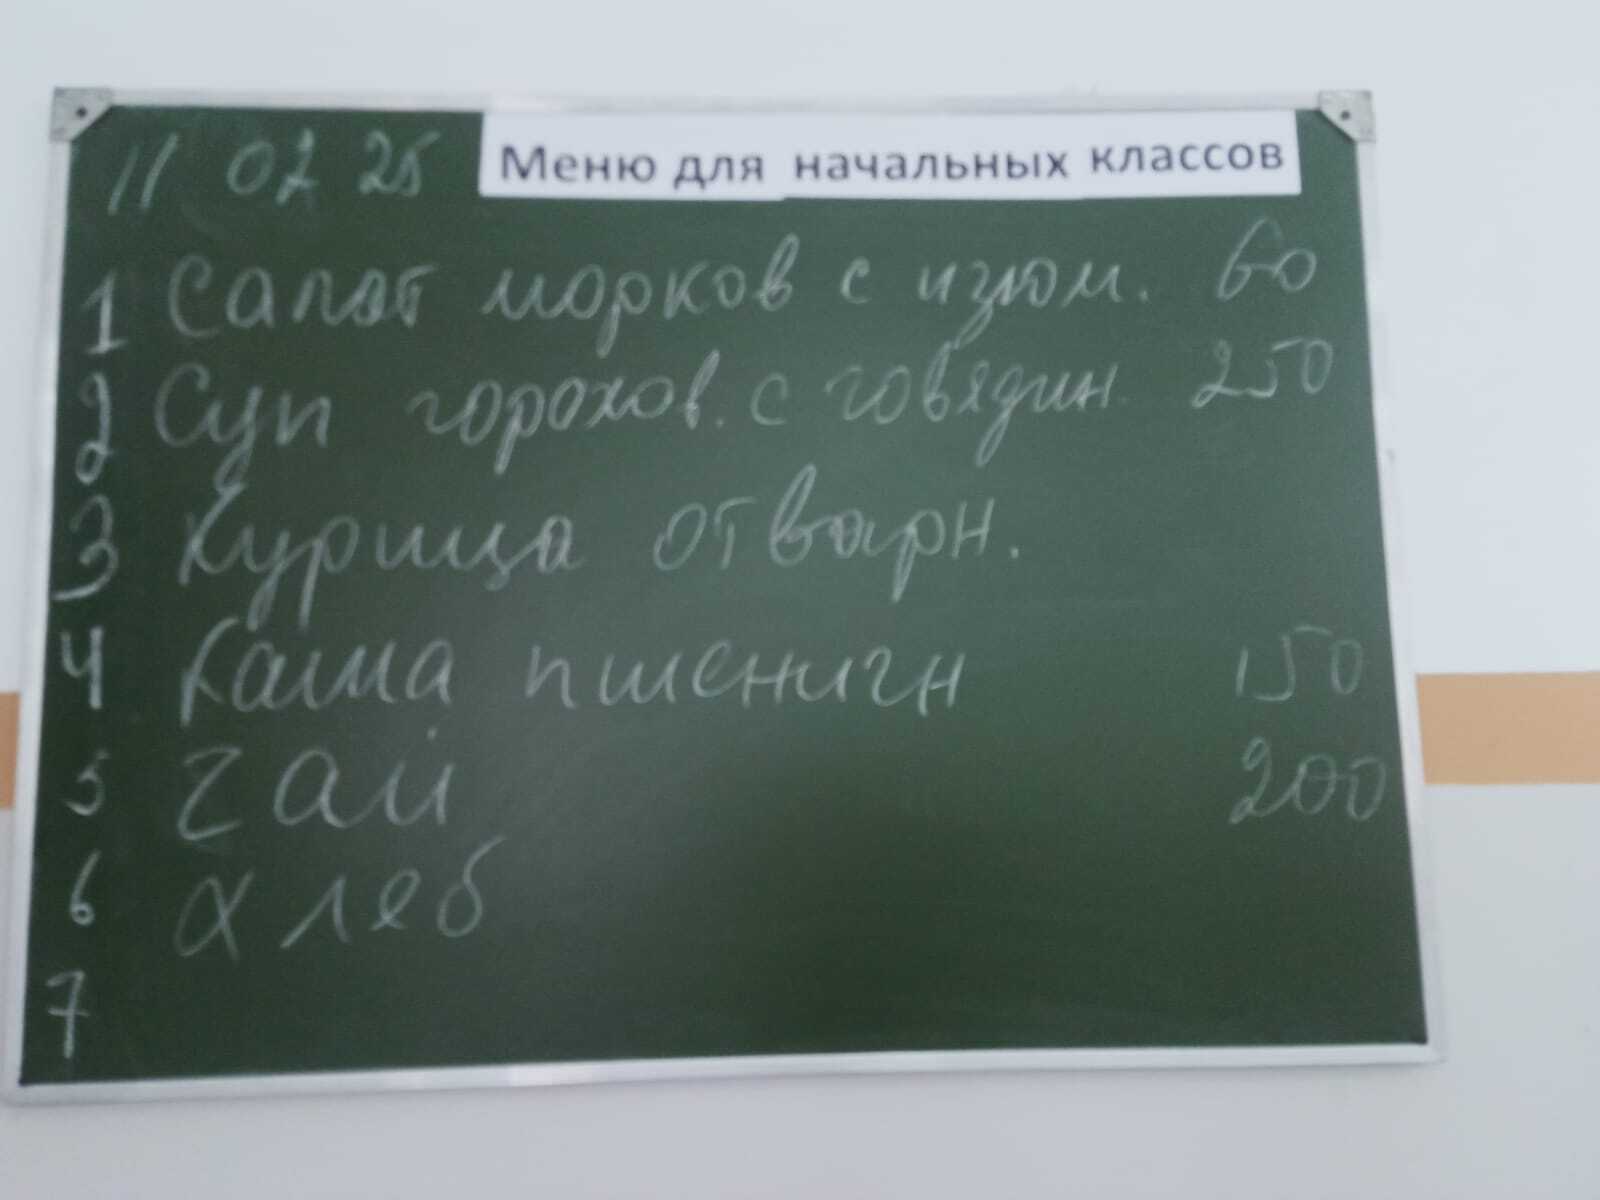 11 02 25 Меню для начальных классов
1 Салат морков с изюм. 60
2 Суп горохов. с говядин. 250
3 Курица отварн.
4 Каша пшеничн 150
5 Чай 200
6 Хлеб
7